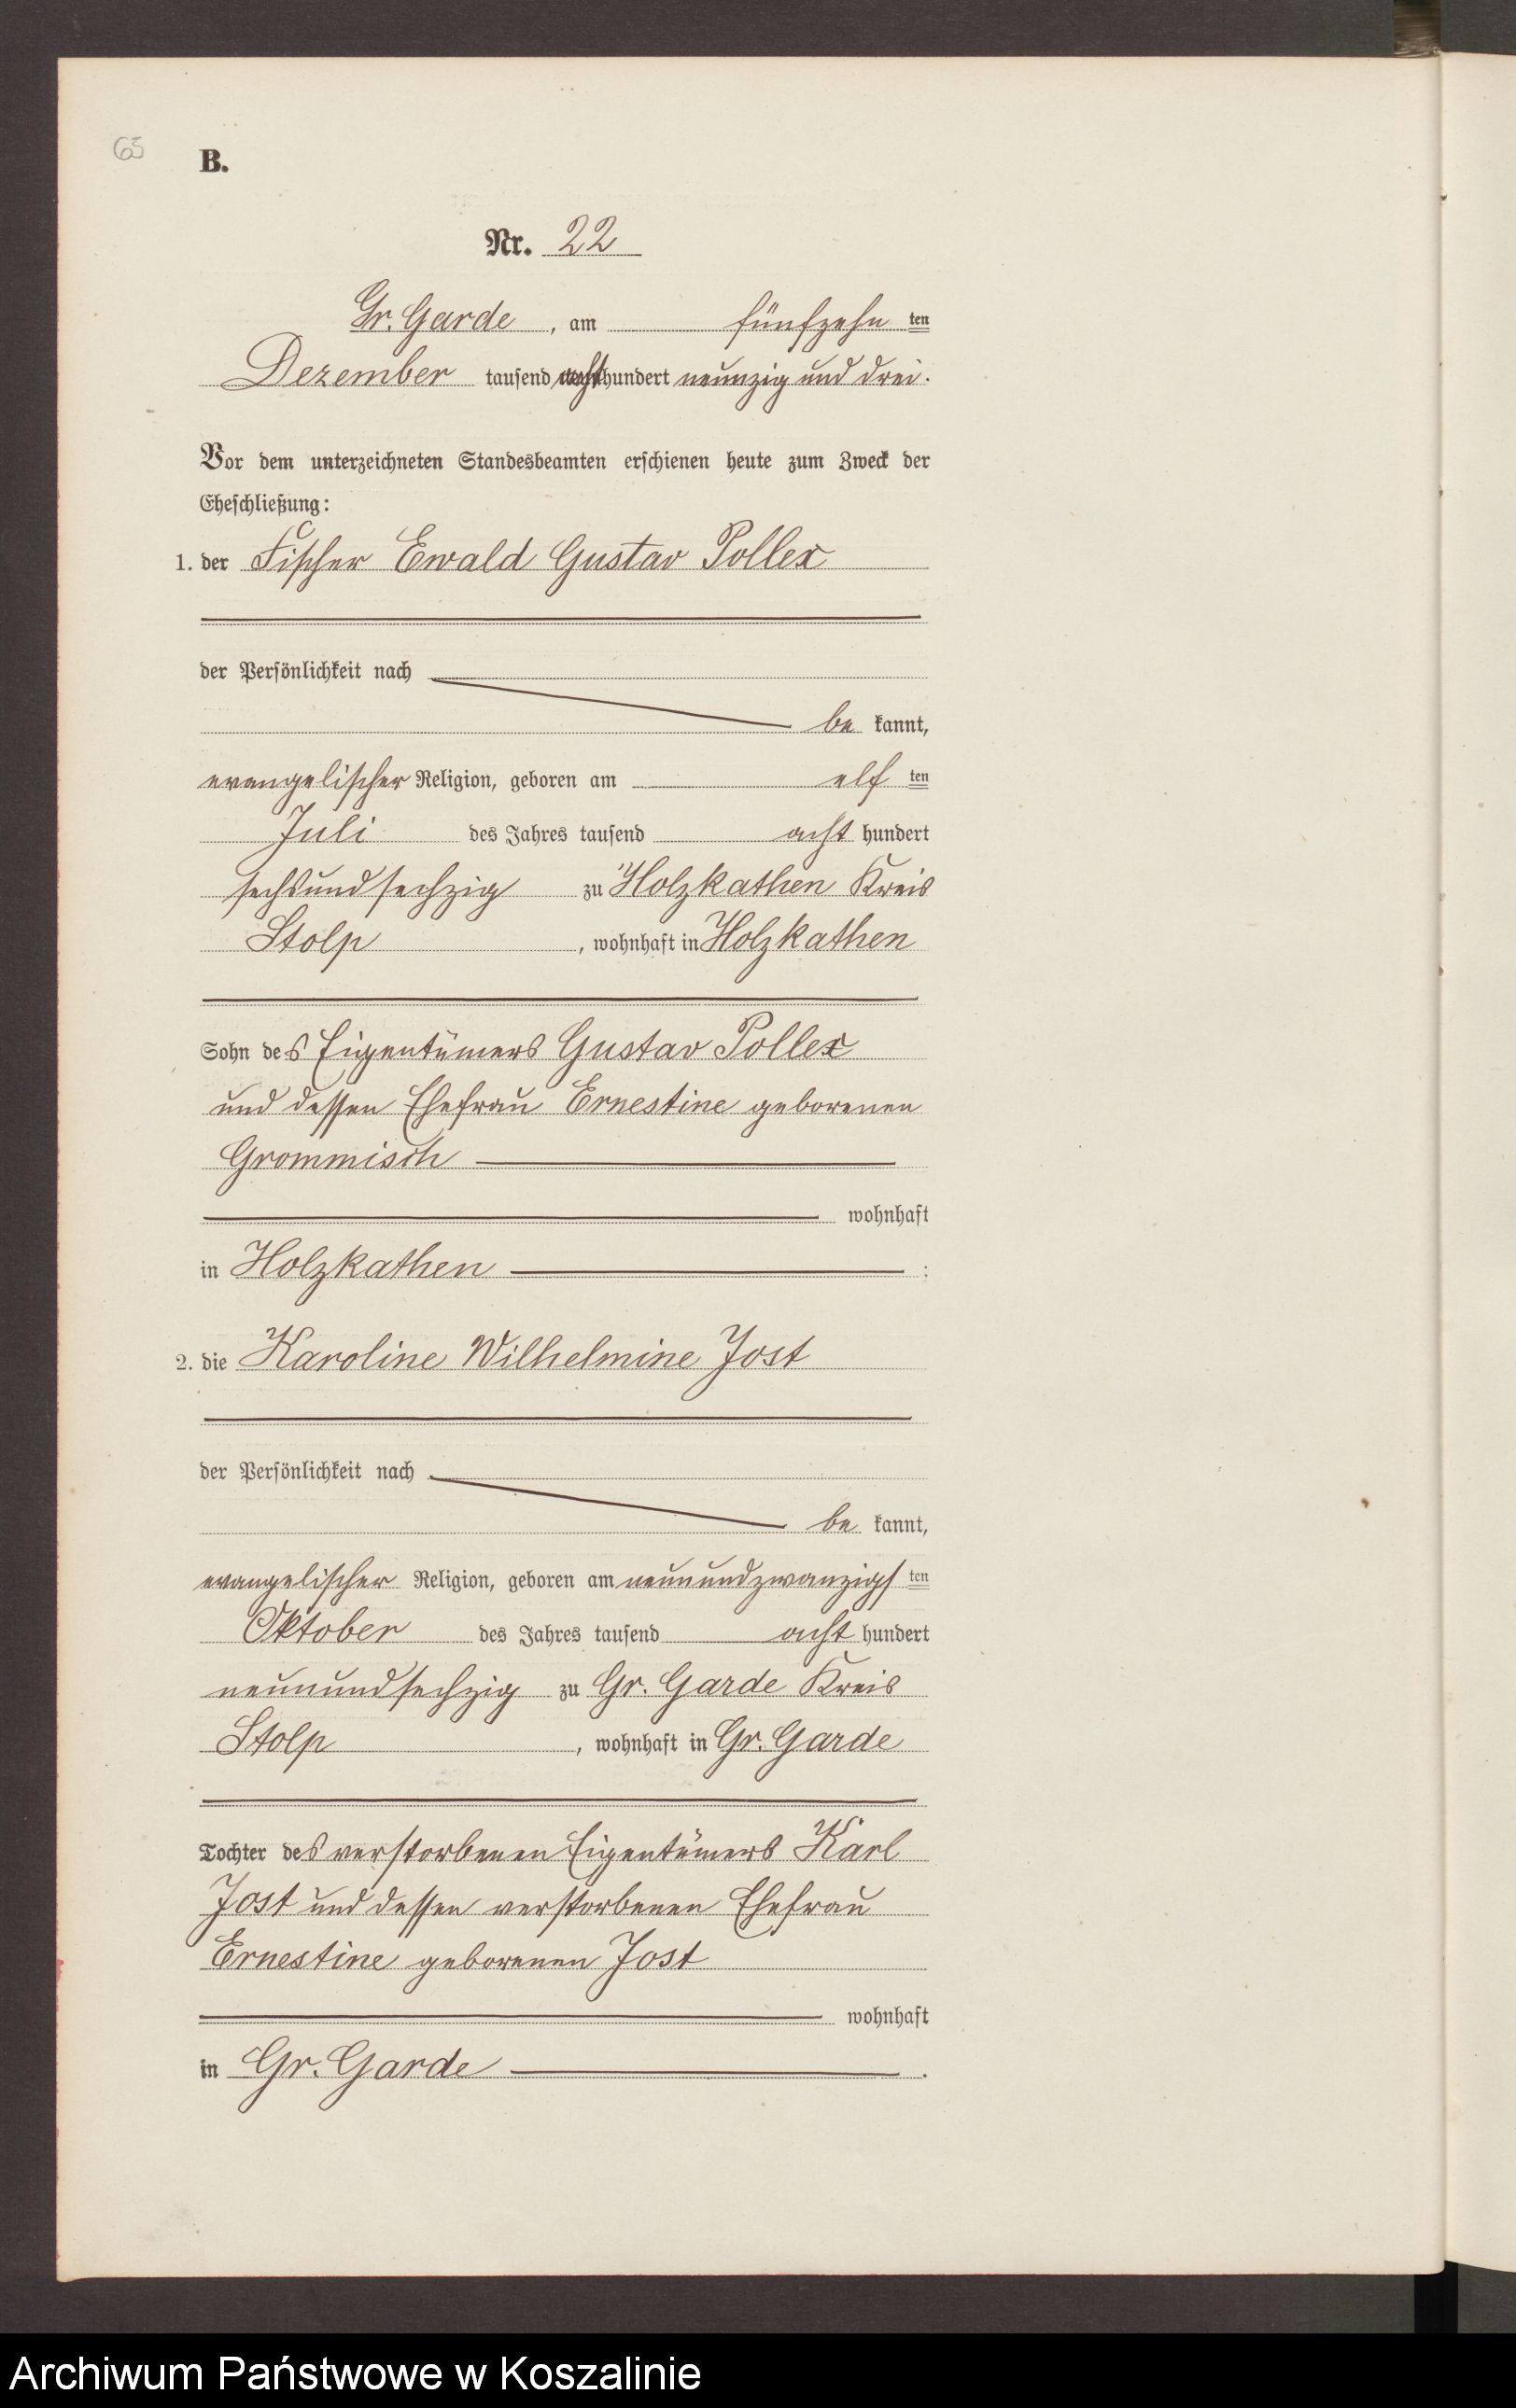 65
B.
Nr. 22
Gr. Garde, am fünfzehn ten
Dezember tausend acht hundert neunzig und drei.
Vor dem unterzeichneten Standesbeamten erschienen heute zum Zweck der
Eheschließung:
1. der Fischer Ewald Gustav Pollex
der Persönlichkeit nach
be kannt,
evangelischer Religion, geboren am elf ten
Juli des Jahres tausend acht hundert
sechsundsechzig zu Holzkathen Kreis
Stolp, wohnhaft in Holzkathen
Sohn des Eigentümers Gustav Pollex
und dessen Ehefrau Ernestine geborenen
Grommisch
wohnhaft
in Holzkathen :
2. die Karoline Wilhelmine Jost
der Persönlichkeit nach
be kannt,
evangelischer Religion, geboren am neunundzwanzigs ten
Oktober des Jahres tausend acht hundert
neunundsechzig zu Gr. Garde Kreis
Stolp, wohnhaft in Gr. Garde
Tochter des verstorbenen Eigentümers Karl
Jost und dessen verstorbenen Ehefrau
Ernestine geborenen Jost
wohnhaft
in Gr. Garde .
Archiwum Państwowe w Koszalinie